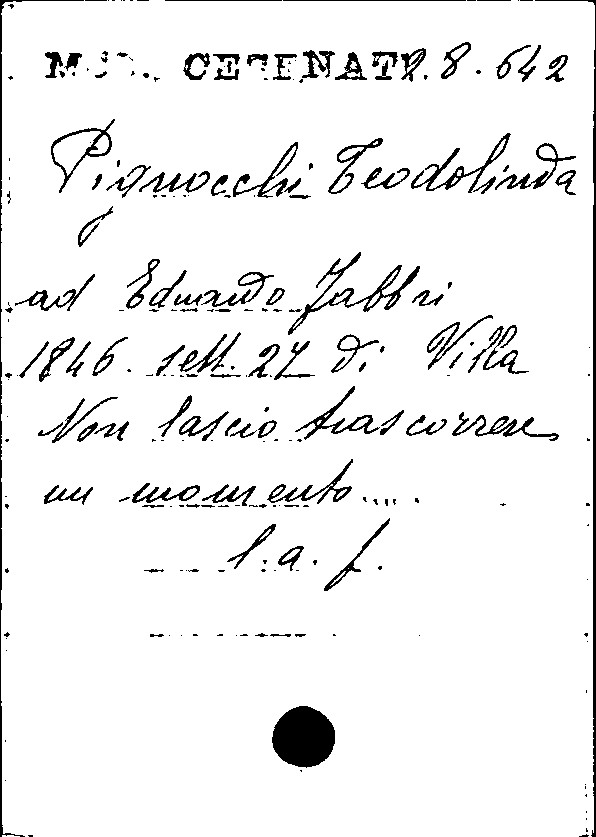 MSS. CESENATI 2.8.642
Pignocchi Teodolinda
ad Eduardo Fabbri
1846. sett. 27 di Villa
Non lascio trascorrere
un momento....
l. a. f.